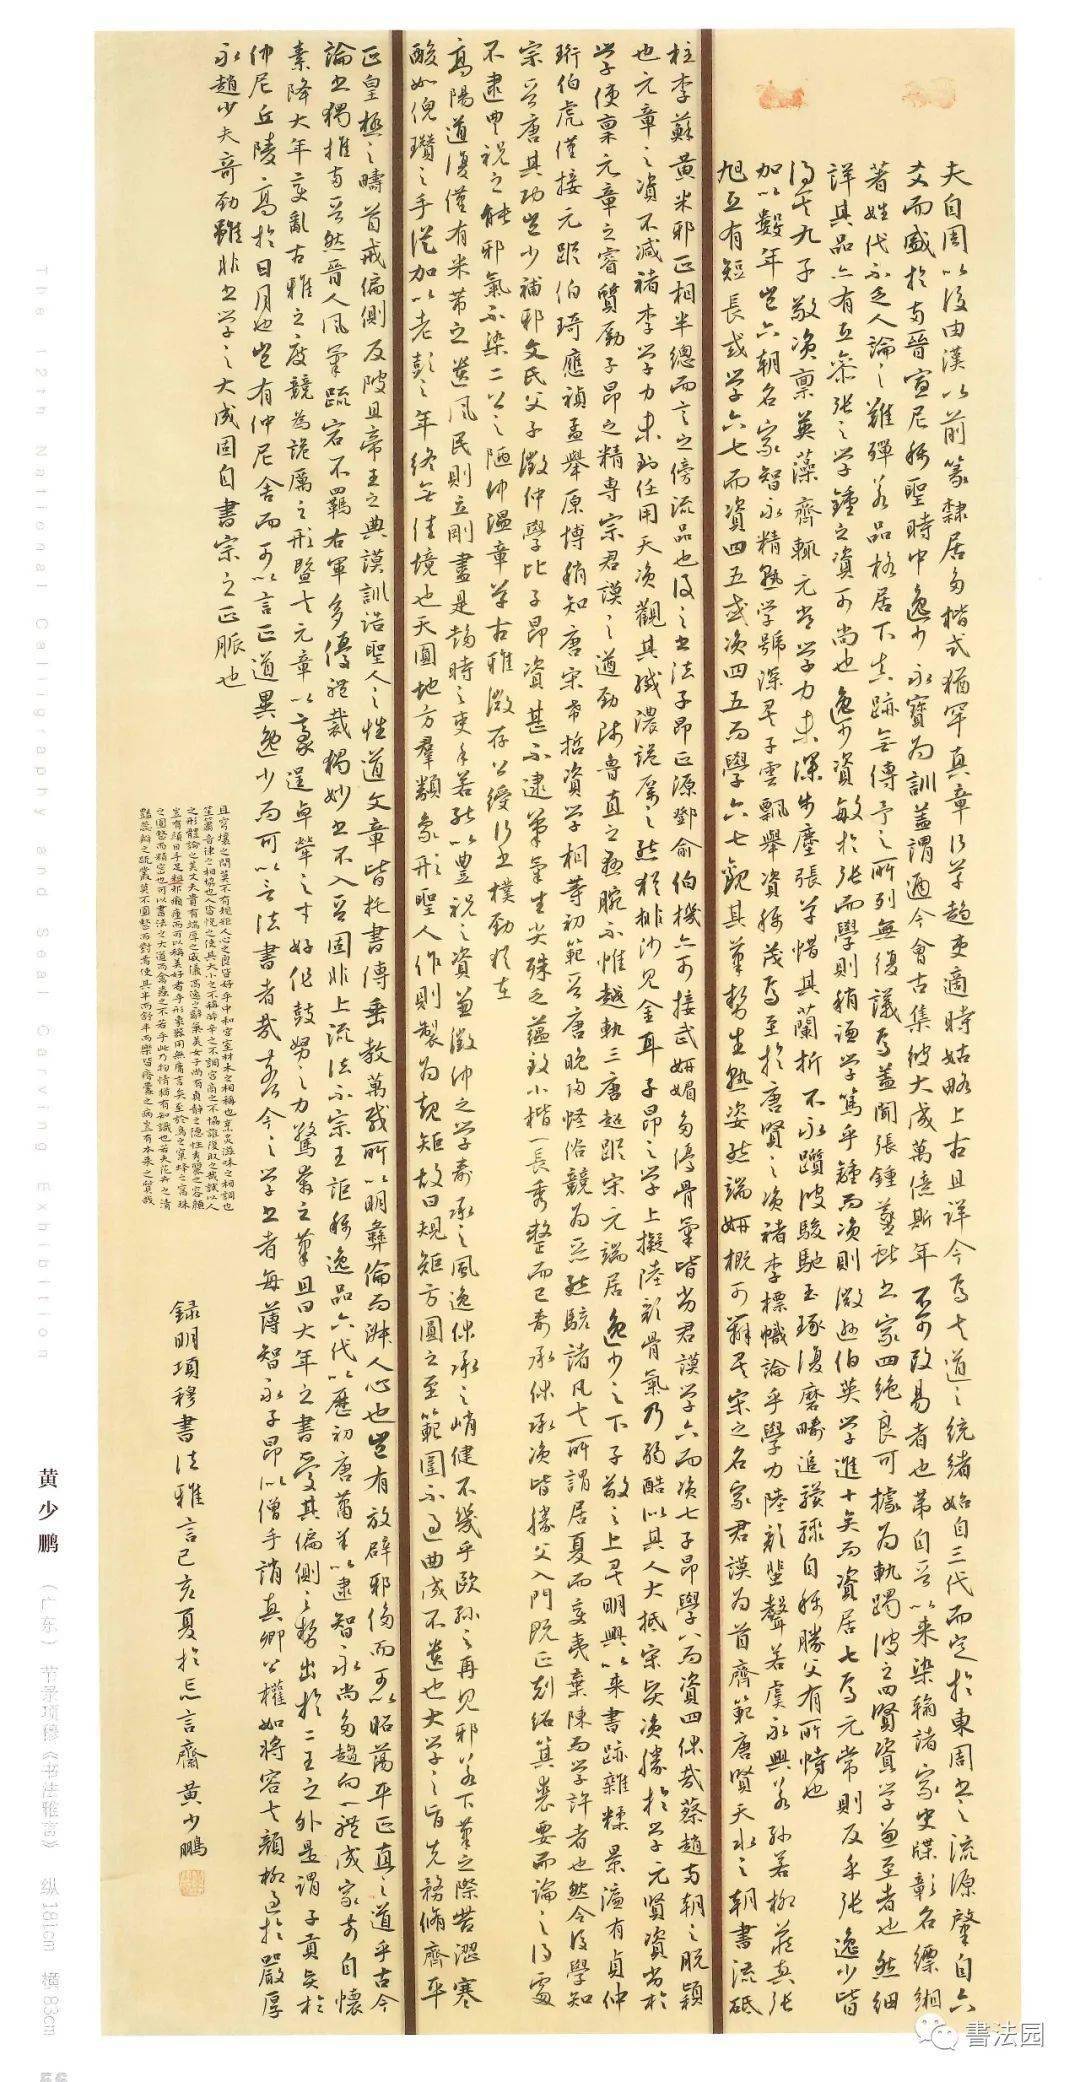 夫自周以後由漢以前篆隸居多楷式猶罕真章行草趨吏適時姑略上古且詳今焉夫道之統緒始自三代而定於東周書之流源肇自六
爻而盛於兩晉宣尼稱聖時中逸少永寶為訓蓋謂通今會古集彼大成萬億斯年不可改易者也第自晉以來染翰諸家史牒彰名縹緗
著姓代不乏人論之難殫若品格居下真跡無傳予之所列無復議焉蓋聞張鍾羲獻書家四絕良可據為軌躅彼之四賢資學兼至者也然細
詳其品亦有互差張之學鍾之資不可尚也逸少資敏於張而學則稍謙學篤乎鍾而資則微遜伯英學進十矣而資居七焉元常則反乎張逸少皆
得其九子敬資稟英藻齊轍元常學力未深步塵張草惜其蘭折不永躓彼駿馳玉琢復磨疇追驥驟自稱勝父有所恃也
加以數年豈六朝名家智永精熟學號深矣子雲飄舉資稱茂焉至於唐賢之資褚李標幟論乎學力陸顏蜚聲若虞永興若孫若柳藏真張
旭互有短長或學六七而資四五或資四五而學六七觀其筆勢生熟姿態端妍概可辯矣宋之名家君謨為首齊範唐賢天水之朝書流砥
柱李蘇黃米邪正相半總而言之傍流品也後之書法子昂正源鄧俞伯機亦可接武妍媚多優骨氣皆劣君謨學六而資七子昂學八而資四休哉蔡趙兩朝之脫穎
也元章之資不減褚李學力未到任用天資觀其纖濃詭厲之態猶排沙見金耳子昂之學上擬陸顏骨氣乃弱酷似其人大抵宋賢資勝於學元賢資劣於
學使稟元章之睿質勵子昂之精專宗君謨之遒勁師魯直之懸腕不惟越軌三唐超蹤宋元端居逸少之下子敬之上矣明興以來書跡雜糅景濂有貞仲
珩伯虎僅接元蹤伯琦應禎孟舉原博稍知唐宋希哲資學相等初範晉唐晚歸怪俗競為惡態駭諸凡夫所謂居夏而變夷棄陳而學許者也然令後學知
宗晉唐其功豈少補邪文氏父子徵仲學比子昂資甚不逮筆氣生尖殊乏蘊致小楷一長秀整而已壽承休承資皆勝父入門既正克紹箕裘要而論之得處
不逮豐祝之能邪氣不染二公之陋仲溫章草古雅微存公綬行書樸勁猶在
高陽道復僅有米芾之遺風民則立剛盡是趨時之吏手若能以豐祝之資兼徵仲之學壽承之風逸休承之峭健不幾乎歐孫之再見邪若下筆之際苦澀寒
酸如倪瓚之手縱加以老彭之年終無佳境也天圓地方羣類象形聖人作則製為規矩故曰規矩方圓之至範圍不過曲成不遺也大學之旨先務脩齊平
正皇極之疇首戒偏側反陂且帝王之典謨訓誥聖人之性道文章皆託書傳垂教萬載所以明彝倫而淑人心也豈有放辟邪侈而可以昭蕩平正直之道乎古今
論書獨推兩晉然晉人風氣疏宕不羈右軍多優體裁獨妙書不入晉固非上流法不宗王詎稱逸品六代以歷初唐蕭羊以逮智永尚多趨向一體成家奇自懷
素降大年變亂古雅之度競為詭厲之形暨夫元章以豪逞卓犖之才好作鼓努之力驚奔之筆且曰大年之書受其偏側之勢出於二王之外是謂子貢賢於
仲尼丘陵高於日月也豈有仲尼舍而可以言正道異逸少而可以言法書者哉奈今之學書者每薄智永子昂似僧手誚真卿公權如將容夫顏柳過於嚴厚
永趙少夫奇勁雖非書學之大成固自書宗之正脈也
且穹壤之間莫不有規矩人心之良皆好乎中和宮室材木之相稱也烹炙滋味之相調也
笙簫音律之相協也人皆悅之使其大小之不稱酸辛之不調宮商之不協誰復取之哉試以人
之形體論之美丈夫貴有端厚之威儀高逸之辭氣美女子尚有貞靜之德性秀麗之容顏
錄明項穆書法雅言己亥夏於忘言齋黃少鵬
The 12th National Calligraphy and Seal Carving Exhibition
黄少鹏 （广东） 节录项穆《书法雅言》 纵181cm 横83cm
56
書法园